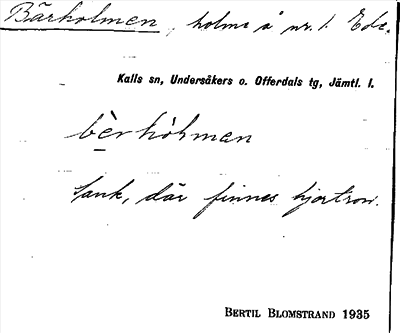 Bärholmen, holme å nr. 1. Ede.
Kalls sn, Undersåkers o. Offerdals tg, Jämtl. l.
bèrhòhman
Sank, där finnes hjortron.
BERTIL BLOMSTRAND 1935